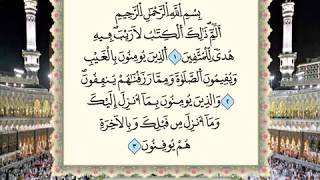 بِسْمِ اِللَّهِ اِلرَّحْمَٰنِ اِلرَّحِيمِ
أَلَٓمِّٓ ذَٰلِكَ اَلْكِتَٰبُ لَا رَيْبَ فِيهِ
هُدًى لِّلْمُتَّقِينَ ١ اَلذِينَ يُومِنُونَ بِالْغَيْبِ
وَيُقِيمُونَ اَلصَّلَوٰةَ وَمِمَّا رَزَقْنَٰهُمْ يُنفِقُونَ
٢ وَالذِينَ يُومِنُونَ بِمَا أُنزِلَ إِلَيْكَ
وَمَا أُنزِلَ مِن قَبْلِكَ وَبِالَاخِرَةِ
هُمْ يُوقِنُونَ ٣